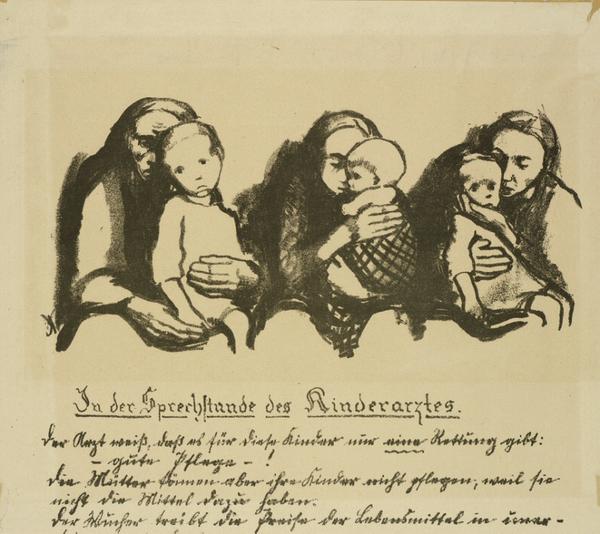 In der Sprechstunde des Kinderarztes.
Der Arzt weiß, daß es für diese Kinder nur eine Rettung gibt:
– gute Pflege – !
die Mütter können aber ihre Kinder nicht pflegen, weil sie
nicht die Mittel dazu haben.
Der Wucher treibt die Preise der Lebensmittel in uner-